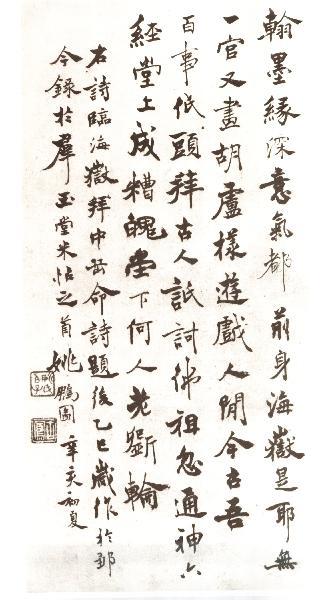 翰墨緣深意氣都前身海嶽是耶無
一官又畫胡盧樣遊戲人閒今古吾
百事低頭拜古人詆訶佛祖忽通神六
經堂上成糟魄堂下何人老斲輪
右詩臨海嶽拜中岳命詩題後乙巳歲作於
今錄於羣玉堂米帖之首姚鵬圖辛亥初夏